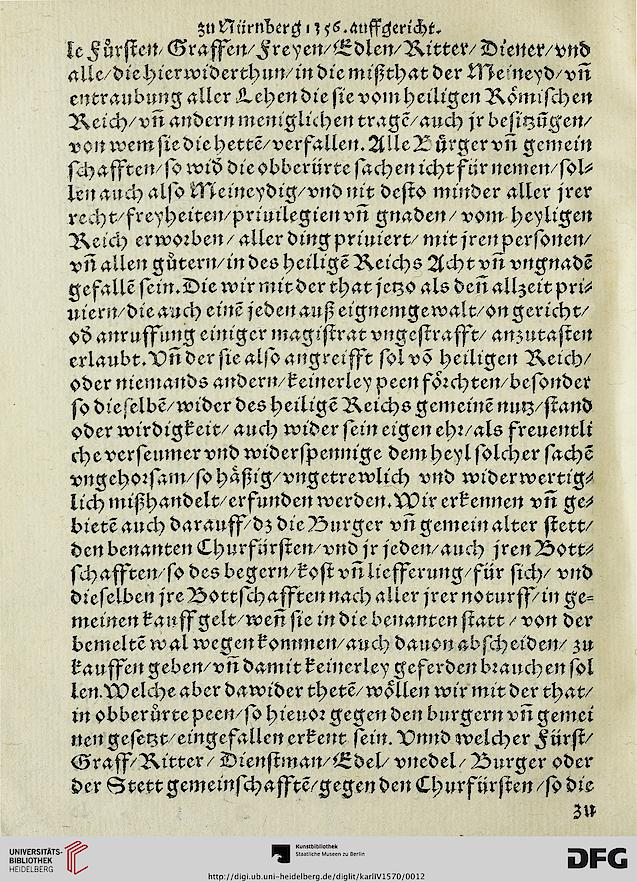 zu Nürnberg 1356. auffgericht.
le Fürsten/ Graffen/ Freyen/ Edlen/ Ritter/ Diener/ vnd
alle/ die hierwiderthun/ in die mißthat der Meineyd/ vñ
entraubung aller Lehen die sie vom heiligen Römischen
Reich/ vñ andern meniglichen tragẽ/ auch jr besitzũgen/
von wem sie die hettẽ/ verfallen. Alle Bürger vñ gemein
schafften/ so wid die obberürte sachen icht für nemen/ sol⸗
len auch also Meineydig/ vnd nit desto minder aller jrer
recht/ freyheiten/ priuilegien vñ gnaden/ vom heyligen
Reich erworben/ aller ding priuiert/ mit jren personen/
vñ allen gütern/ in des heiligẽ Reichs Acht vñ vngnadẽ
gefallẽ sein. Die wir mit der that jetzo als deñ allzeit pri⸗
uiern/ die auch einẽ jeden auß eignem gewalt/ on gericht/
od anruffung einiger magistrat vngestrafft/ anzutasten
erlaubt. Vñ der sie also angreifft sol võ heiligen Reich/
oder niemands andern/ keinerley peen förchten/ besonder
so dieselbẽ/ wider des heiligẽ Reichs gemeinẽ nutz/ stand
oder wirdigkeit/ auch wider sein eigen ehr/ als freuentli
che verseumer vnd widerspennige dem heyl solcher sachẽ
vngehorsam/ so häßig/ vngetrewlich vnd widerwertig⸗
lich mißhandelt/ erfunden werden. Wir erkennen vñ ge⸗
bietẽ auch darauff/ dz die Burger vñ gemein alter stett/
den benanten Churfürsten/ vnd jr jeden/ auch jren Bott⸗
schafften/ so des begern/ kost vñ liefferung/ für sich/ vnd
dieselben jre Bottschafften nach aller jrer noturff/ in ge⸗
meinen kauff gelt/ weñ sie in die benanten statt/ von der
bemeltẽ wal wegen kommen/ auch dauon abscheiden/ zu
kauffen geben/ vñ damit keinerley geferden brauchen sol
len. Welche aber dawider thetẽ/ wöllen wir mit der that/
in obberürte peen/ so hieuor gegen den burgern vñ gemei
nen gesetzt/ eingefallen erkent sein. Vnnd welcher Fürst/
Graff/ Ritter/ Dienstman/ Edel/ vnedel/ Burger oder
der Stett gemeinschafftẽ/ gegen den Churfürsten/ so die
zu
UNIVERSITÄTS-
BIBLIOTHEK
HEIDELBERG
Kunstbibliothek
Staatliche Museen zu Berlin
DFG
http://digi.ub.uni-heidelberg.de/diglit/karlIV1570/0012